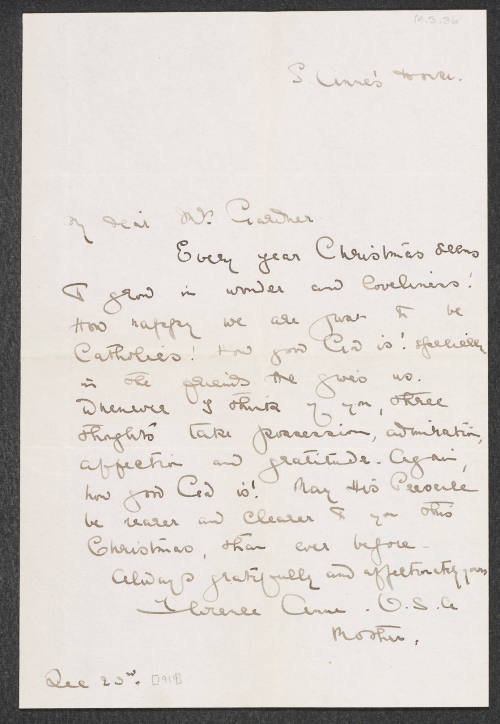 M.S. 36
S Anne's House.
My dear Mrs. Gardner
Every year Christmas seems
to grow in wonder and loveliness!
How happy we are just to be
Catholics! How good God is! specially
in the friends He gives us.
Whenever I think of you, three
thoughts take possession, admiration,
affection and gratitude. Again,
how good God is! May His Presence
be nearer and clearer to you this
Christmas, than ever before.
Always gratefully and affectionately yours
Florence Anne. O.S.A
Mother.
Dec 23rd. [191]